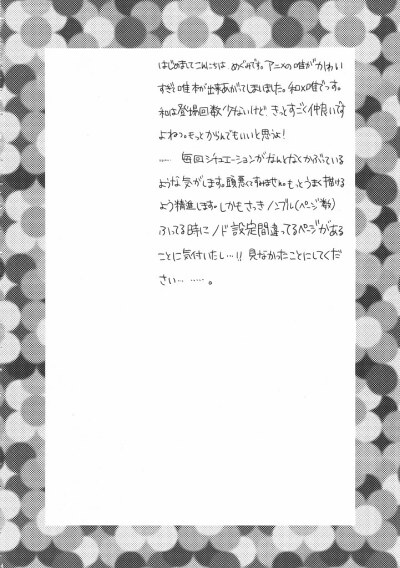 はじめましてこんにちは めぐみです。アニメの唯がかわい
すぎて唯本が出来あがってしまいました。和×唯でっす。
和は登場回数少ないけど、きっとすごく仲良いです
よねっ。もっとからんでもいいと思うよ!
…… 毎回シチュエーションがなんとなくかぶっている
ような気がします。頭悪くてすみません。もっとうまく描ける
よう精進します。しかもさっきノンブル(ページ数)
ふってる時にノド設定間違ってるページがある
ことに気付いたし…!! 見なかったことにしてくだ
さい… ……。